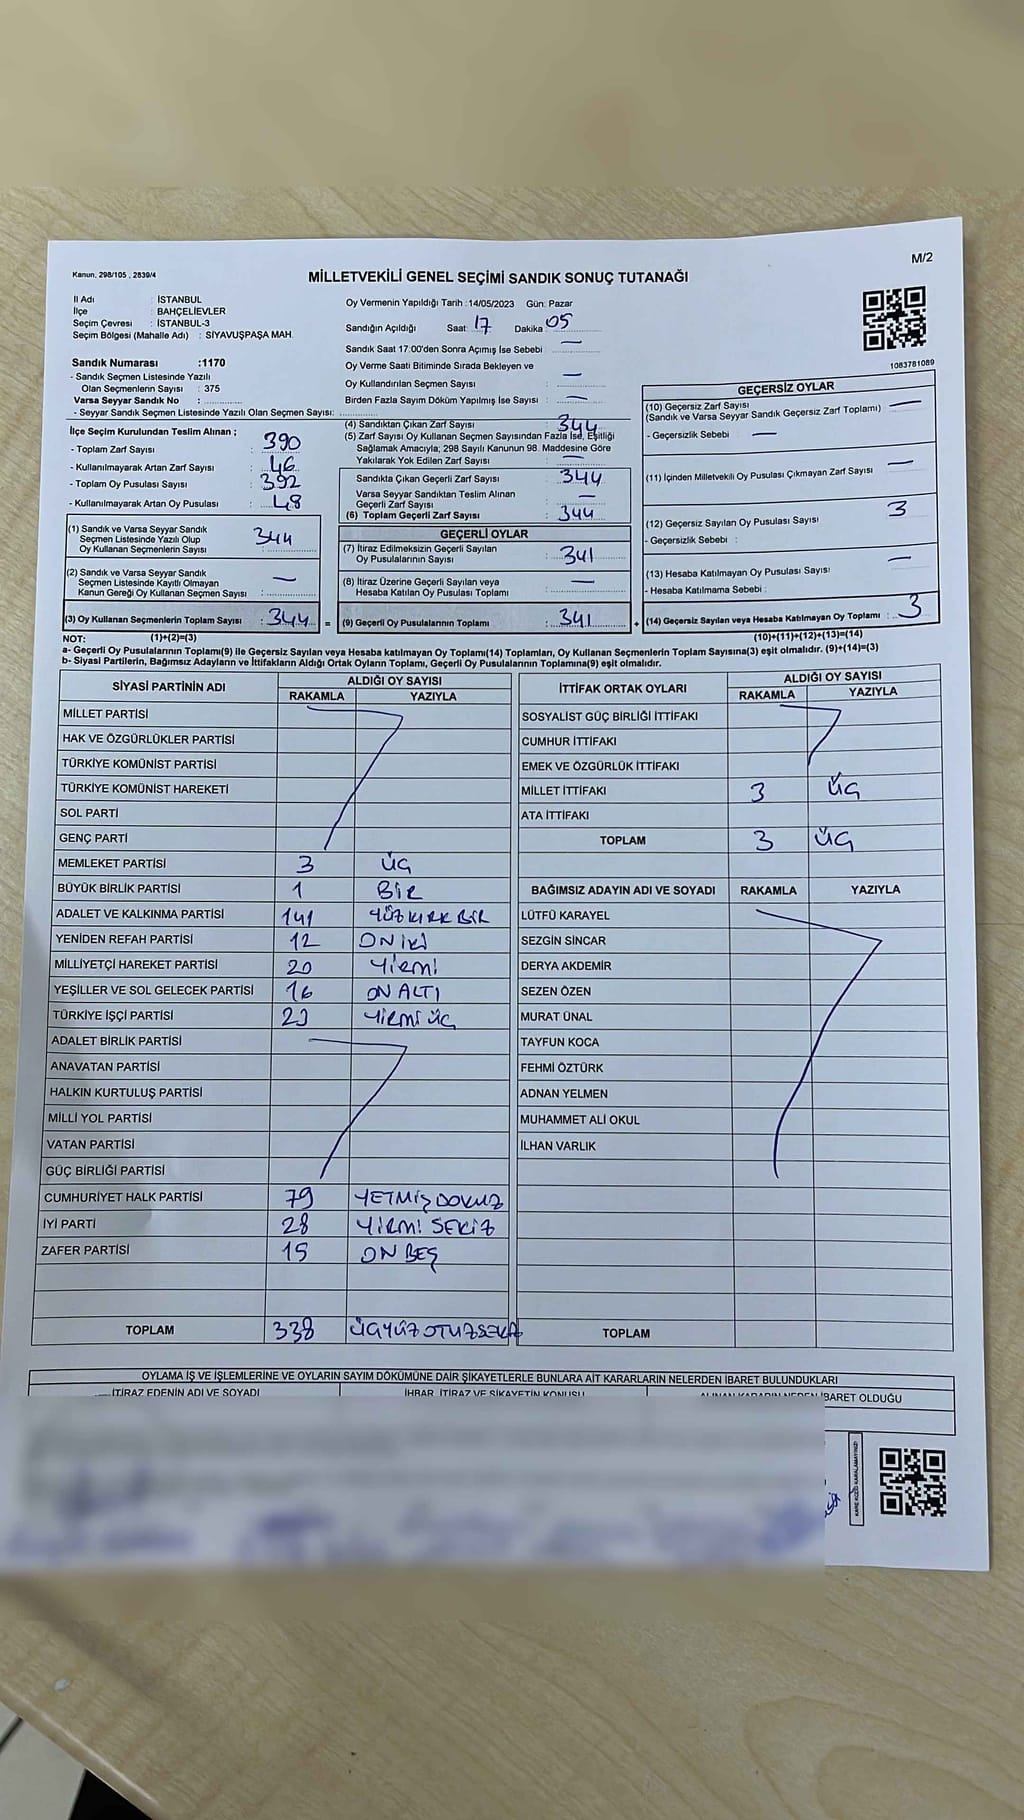 M/2
Kanun, 298/105 , 2839/4
MİLLETVEKİLİ GENEL SEÇİMİ SANDIK SONUÇ TUTANAĞI
İl Adı : İSTANBUL
İlçe : BAHÇELİEVLER
Seçim Çevresi : İSTANBUL-3
Seçim Bölgesi (Mahalle Adı) : SİYAVUŞPAŞA MAH.
Oy Vermenin Yapıldığı Tarih :14/05/2023 Gün: Pazar
Sandığın Açıldığı Saat: 17 Dakika: 05
Sandık Saat 17:00'den Sonra Açımış İse Sebebi : —
Oy Verme Saati Bitiminde Sırada Bekleyen ve
Oy Kullandırılan Seçmen Sayısı : —
Birden Fazla Sayım Döküm Yapılmış İse Sayısı : —
1083781089
Sandık Numarası :1170
- Sandık Seçmen Listesinde Yazılı
Olan Seçmenlerin Sayısı : 375
Varsa Seyyar Sandık No :
- Seyyar Sandık Seçmen Listesinde Yazılı Olan Seçmen Sayısı:
İlçe Seçim Kurulundan Teslim Alınan ;
- Toplam Zarf Sayısı : 390
- Kullanılmayarak Artan Zarf Sayısı : 46
- Toplam Oy Pusulası Sayısı : 392
- Kullanılmayarak Artan Oy Pusulası : 48
(1) Sandık ve Varsa Seyyar Sandık
Seçmen Listesinde Yazılı Olup
Oy Kullanan Seçmenlerin Sayısı : 344
(2) Sandık ve Varsa Seyyar Sandık
Seçmen Listesinde Kayıtlı Olmayan
Kanun Gereği Oy Kullanan Seçmen Sayısı : —
(3) Oy Kullanan Seçmenlerin Toplam Sayısı : 344 =
(4) Sandıktan Çıkan Zarf Sayısı : 344
(5) Zarf Sayısı Oy Kullanan Seçmen Sayısından Fazla İse, Eşitliği
Sağlamak Amacıyla; 298 Sayılı Kanunun 98. Maddesine Göre
Yakılarak Yok Edilen Zarf Sayısı : —
Sandıkta Çıkan Geçerli Zarf Sayısı : 344
Varsa Seyyar Sandıktan Teslim Alınan
Geçerli Zarf Sayısı : —
(6) Toplam Geçerli Zarf Sayısı : 344
GEÇERLİ OYLAR
(7) İtiraz Edilmeksizin Geçerli Sayılan
Oy Pusulalarının Sayısı : 341
(8) İtiraz Üzerine Geçerli Sayılan veya
Hesaba Katılan Oy Pusulası Toplamı : —
(9) Geçerli Oy Pusulalarının Toplamı : 341 +
GEÇERSİZ OYLAR
(10) Geçersiz Zarf Sayısı : —
(Sandık ve Varsa Seyyar Sandık Geçersiz Zarf Toplamı)
- Geçersizlik Sebebi : —
(11) İçinden Milletvekili Oy Pusulası Çıkmayan Zarf Sayısı : —
(12) Geçersiz Sayılan Oy Pusulası Sayısı : 3
- Geçersizlik Sebebi :
(13) Hesaba Katılmayan Oy Pusulası Sayısı : —
- Hesaba Katılmama Sebebi :
(14) Geçersiz Sayılan veya Hesaba Katılmayan Oy Toplamı : 3
NOT: (1)+(2)=(3) (10)+(11)+(12)+(13)=(14)
a- Geçerli Oy Pusulalarının Toplamı(9) ile Geçersiz Sayılan veya Hesaba katılmayan Oy Toplamı(14) Toplamları, Oy Kullanan Seçmenlerin Toplam Sayısına(3) eşit olmalıdır. (9)+(14)=(3)
b- Siyasi Partilerin, Bağımsız Adayların ve İttifakların Aldığı Ortak Oyların Toplamı, Geçerli Oy Pusulalarının Toplamına(9) eşit olmalıdır.
SİYASİ PARTİNİN ADI ALDIĞI OY SAYISI
RAKAMLA YAZIYLA
MİLLET PARTİSİ
HAK VE ÖZGÜRLÜKLER PARTİSİ
TÜRKİYE KOMÜNİST PARTİSİ
TÜRKİYE KOMÜNİST HAREKETİ
SOL PARTİ
GENÇ PARTİ
MEMLEKET PARTİSİ 3 ÜÇ
BÜYÜK BİRLİK PARTİSİ 1 BİR
ADALET VE KALKINMA PARTİSİ 141 YÜZ KIRK BİR
YENİDEN REFAH PARTİSİ 12 ON İKİ
MİLLİYETÇİ HAREKET PARTİSİ 20 YİRMİ
YEŞİLLER VE SOL GELECEK PARTİSİ 16 ON ALTI
TÜRKİYE İŞÇİ PARTİSİ 23 YİRMİ ÜÇ
ADALET BİRLİK PARTİSİ
ANAVATAN PARTİSİ
HALKIN KURTULUŞ PARTİSİ
MİLLİ YOL PARTİSİ
VATAN PARTİSİ
GÜÇ BİRLİĞİ PARTİSİ
CUMHURİYET HALK PARTİSİ 79 YETMİŞ DOKUZ
İYİ PARTİ 28 YİRMİ SEKİZ
ZAFER PARTİSİ 15 ON BEŞ
TOPLAM 338 ÜÇYÜZ OTUZSEKİZ
İTTİFAK ORTAK OYLARI ALDIĞI OY SAYISI
RAKAMLA YAZIYLA
SOSYALİST GÜÇ BİRLİĞİ İTTİFAKI
CUMHUR İTTİFAKI
EMEK VE ÖZGÜRLÜK İTTİFAKI
MİLLET İTTİFAKI 3 ÜÇ
ATA İTTİFAKI
TOPLAM 3 ÜÇ
BAĞIMSIZ ADAYIN ADI VE SOYADI RAKAMLA YAZIYLA
LÜTFÜ KARAYEL
SEZGİN SİNCAR
DERYA AKDEMİR
SEZEN ÖZEN
MURAT ÜNAL
TAYFUN KOCA
FEHMİ ÖZTÜRK
ADNAN YELMEN
MUHAMMET ALİ OKUL
İLHAN VARLIK
TOPLAM
OYLAMA İŞ VE İŞLEMLERİNE VE OYLARIN SAYIM DÖKÜMÜNE DAİR ŞİKAYETLERLE BUNLARA AİT KARARLARIN NELERDEN İBARET BULUNDUKLARI
İTİRAZ EDENİN ADI VE SOYADI İHBAR, İTİRAZ VE ŞİKAYETİN KONUSU ALINAN KARARIN NEDEN İBARET OLDUĞU